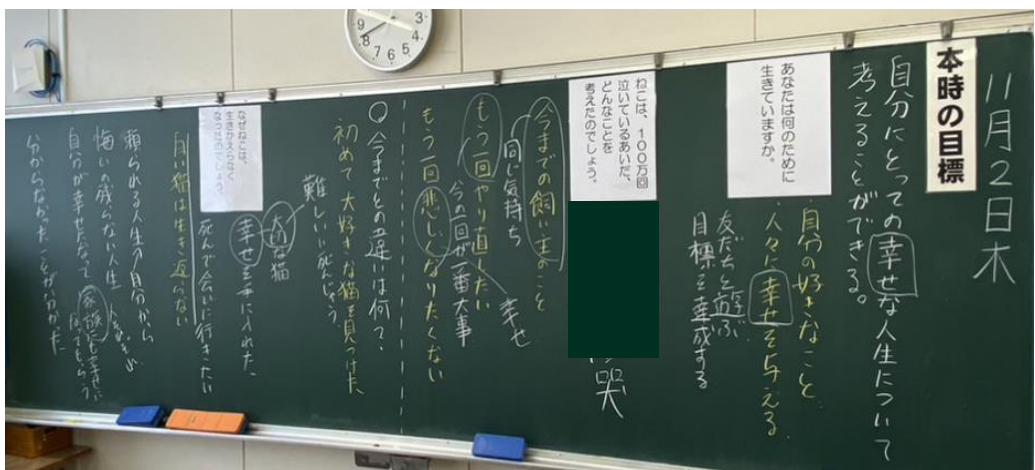 11月2日木
本時の目標
自分にとっての幸せな人生について
考えることができる。
あなたは何のために
生きていますか。
自分の好きなこと
人々に幸せを与える。
友だちと遊ぶ
目標を達成する
ねこは、100万回
泣いているあいだ、
どんなことを
考えたのでしょう。
哭
今までの飼い主のこと
同じ気持ち
幸せ
もう一回やり直したい
今の一回が一番大事
もう一回悲しくなりたくない
今までとの違いは何て、
初めて大好きな猫を見つけた
難しい
死んじゃう。
なぜねこは、
生きかえらなく
なったのでしょう。
大切な猫
幸せを手に入れた
死んで会いに行きたい
白い猫は生き返らない
頼られる人生
自分から
悔いの残らない人生
自分が幸せになって
家族にも幸せに
なってもらう
分からなかったことが分かった。